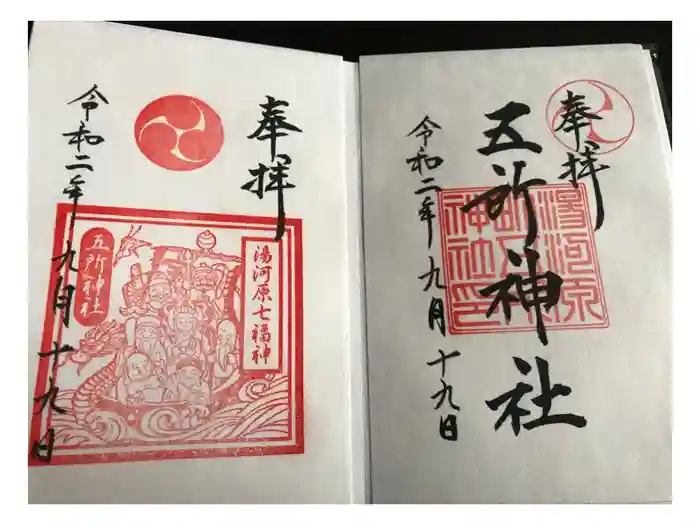 奉拝
五所神社
令和二年九月十九日
奉拝
湯河原七福神
五所神社
令和二年九月十九日